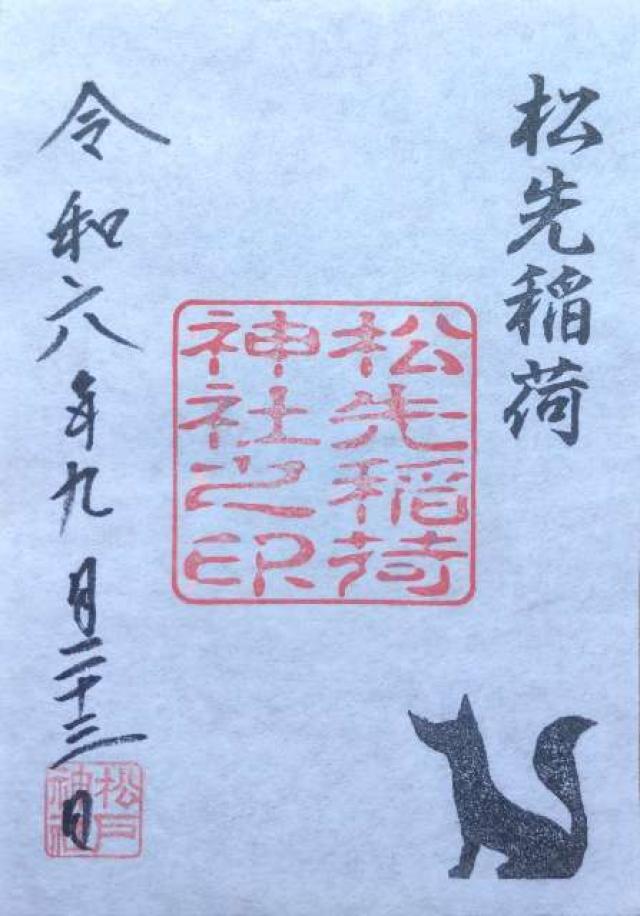 松先稲荷
松先稲荷
神社之印
令和六年九月二十三日
松戸
神社